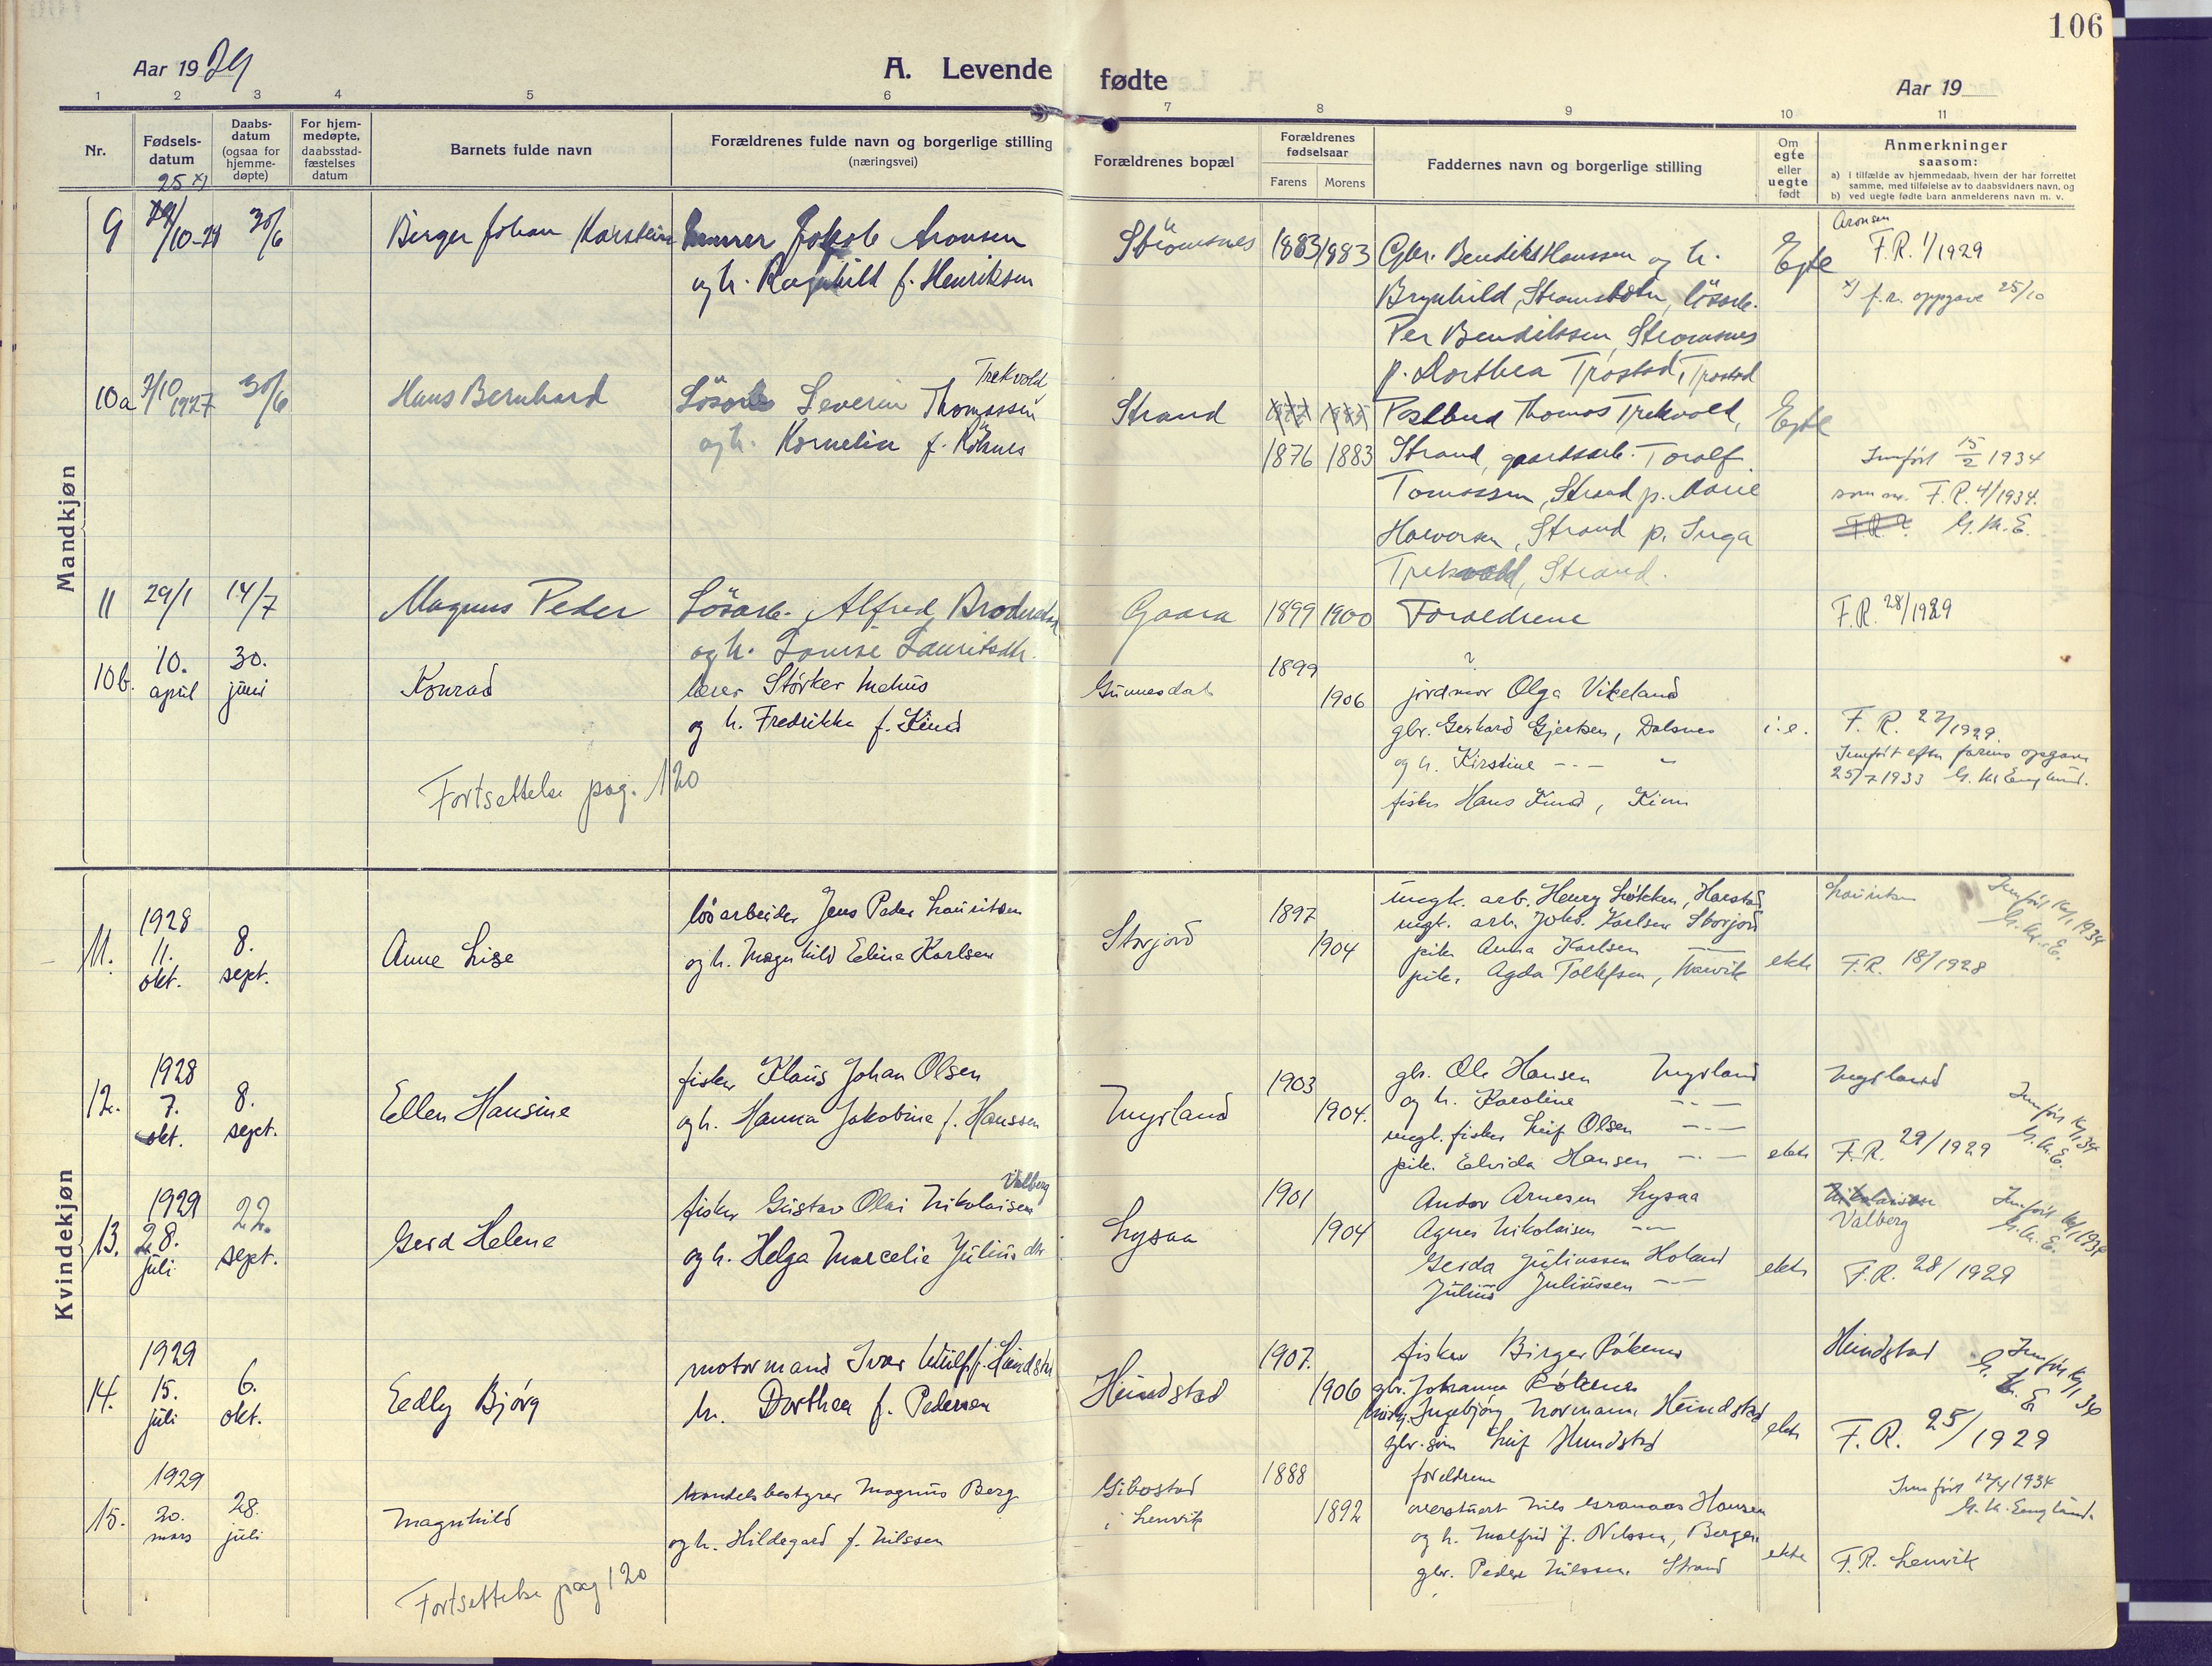 106
Aar 1929
A. Levende fødte
Aar 19
1 2 3 4 5 6 7 8 9 10 11
Nr.
Fødsels-
datum
Daabs-
datum
(ogsaa for
hjemme-
døpte)
For hjem-
medøpte,
daabsstad-
fæstelses
datum
Barnets fulde navn
Forældrenes fulde navn og borgerlige stilling
(næringsvei)
Forældrenes bopæl
Forældrenes
fødselsaar
Farens Morens
Faddernes navn og borgerlige stilling
Om
egte
eller
uegte
født
Anmerkninger
saasom:
a) I tilfælde av hjemmedaab, hvem der har forrettet
samme, med tilføielse av to daabsvidners navn, og
b) ved uegte fødte barn anmelderens navn m. v.
Mandkjøn
25 x)
9
/10-28
30/6
Berger Johan Karstein
Murer Jakob Aronsen
og h. Ragnhild f. Henriksen
Strømsnes
1883 1883
Gbr. Bendiks Hanssen og h.
Brynhild, Strømsbotn, løsarb.
Per Bendikssen, Strømsnes
p. Dorthea Trøstad, Trøstad
Egte
Aronsen
F.R. 1/1929
x) f.r. oppgave 25/10
10a
7/10 1927
30/6
Hans Bernhard
Trekvold
Løsarb Severin Thomassen
og h. Kornelia f. Röknes
Strand
1876 1883
Postbud Thomas Trekvold,
Strand, gaardsarb. Toralf
Tomassen, Strand p. Marie
Halvorsen, Strand p. Inga
Trekvold, Strand.
Egte
Innført 15/2 1934
som nr. F.R. 4/1934.
F.R. G.K.E.
11
29/1
14/7
Magnus Peder
Løsarb. Alfred Brodersen
og h. Lovise Lauritsdtr.
Gaara
1899 1900
Foreldrene
F.R. 28/1929
10b.
10.
april
30.
juni
Konrad
lærer Størker Mehus
og h. Fredrikke f. Kind
Gunnesdal
1899
1906
?
jordmor Olga Vikeland
gbr. Gerhard Gjertsen, Dalsnes
og h. Kirstine - - -
fisker Hans Kind, Kinn
i.e.
F. R. 22/1929.
Innført efter farens opgave
25/7 1933 G. Kr Englund.
Fortsettelse pag. 120
Kvindekjøn
11.
1928
11.
okt.
8.
sept.
Anne Lise
løsarbeider Jens Peder Lauritsen
og h. Magnhild Eline Karlsen
Storjord
1897
1904
ungk. arb. Henry Løkken, Harstad
ungk. arb. Johs. Karlsen Storjord
pike Anna Karlsen
pike, Agda Tollefsen,
ekte
Lauritsen
F.R. 18/1928
Innført 16/1 1934
G.Kr.E.
12.
1928
7.
okt.
8.
sept.
Ellen Hansine
fisker Klaus Johan Olsen
og h. Hanna Jakobine f. Hanssen
Mysland
1903
1904.
gbr. Ole Hansen Mysland
og h. Karoline - - —
ungk. fisker Leif Olsen - - —
pike. Elvida Hansen - - —
ekte
Mysland
F.R. 29/1929
Innført 16/1 34
G.K.E.
13.
1929
28.
juli
22.
sept.
Gerd Helene
Valberg
fisker Gustav Olai Nikolaisen
og h. Helga Marcelie Julius dtr
Lysaa
1901
1904
Andor Arnesen Lysaa
Agnes Nikolaisen - -
Gerda Juliussen Holand
Julius Juliussen - -
ekte
Nikolaisen
Valberg
F.R. 28/1929
Innført 16/1 1934
G.K.E.
14.
1929
15.
juli
6.
okt.
Eedly Bjørg
motormand Ivar Wulff-Heindstad
h. Dorthea f. Pedersen
Heindstad
1907.
1906
fisker Birger Røkenes
gbr. Johanna Røkenes
Ingebjørg Normann, Heindstad
gbr.søn Leif Hundstad
ekte
Heindstad
F.R. 25/1929
Innført 16/1 34
G. K. E.
15.
1929
20.
mars
28.
juli
Magnhild
handelsbestyrer Magnus Berg
og h. Hildegard f. Nilssen
Gibostad
i Lenvik
1888
1892
foreldrene
overstuert Nils Hansen
og h. Malfrid f. Nilssen, Bergen
gbr. Peder Nilssen, Strand
ekte
Innført 12/4 1934
G.K. Englund.
F.R. Lenvik
Fortsettelse pag 120